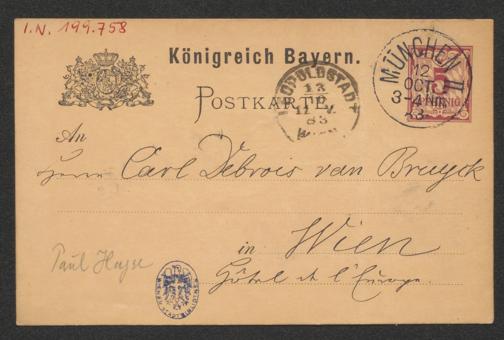 I.N. 199.758
Königreich Bayern.
POSTKARTE.
MÜNCHEN II
12
OCT
3-4 NM.
83
LEOPOLDSTADT
13
10
83
WIEN
5
An
Herrn Carl Debrois van Bruyck
in Wien
Hôtel de l'Europe.
Paul Heyse